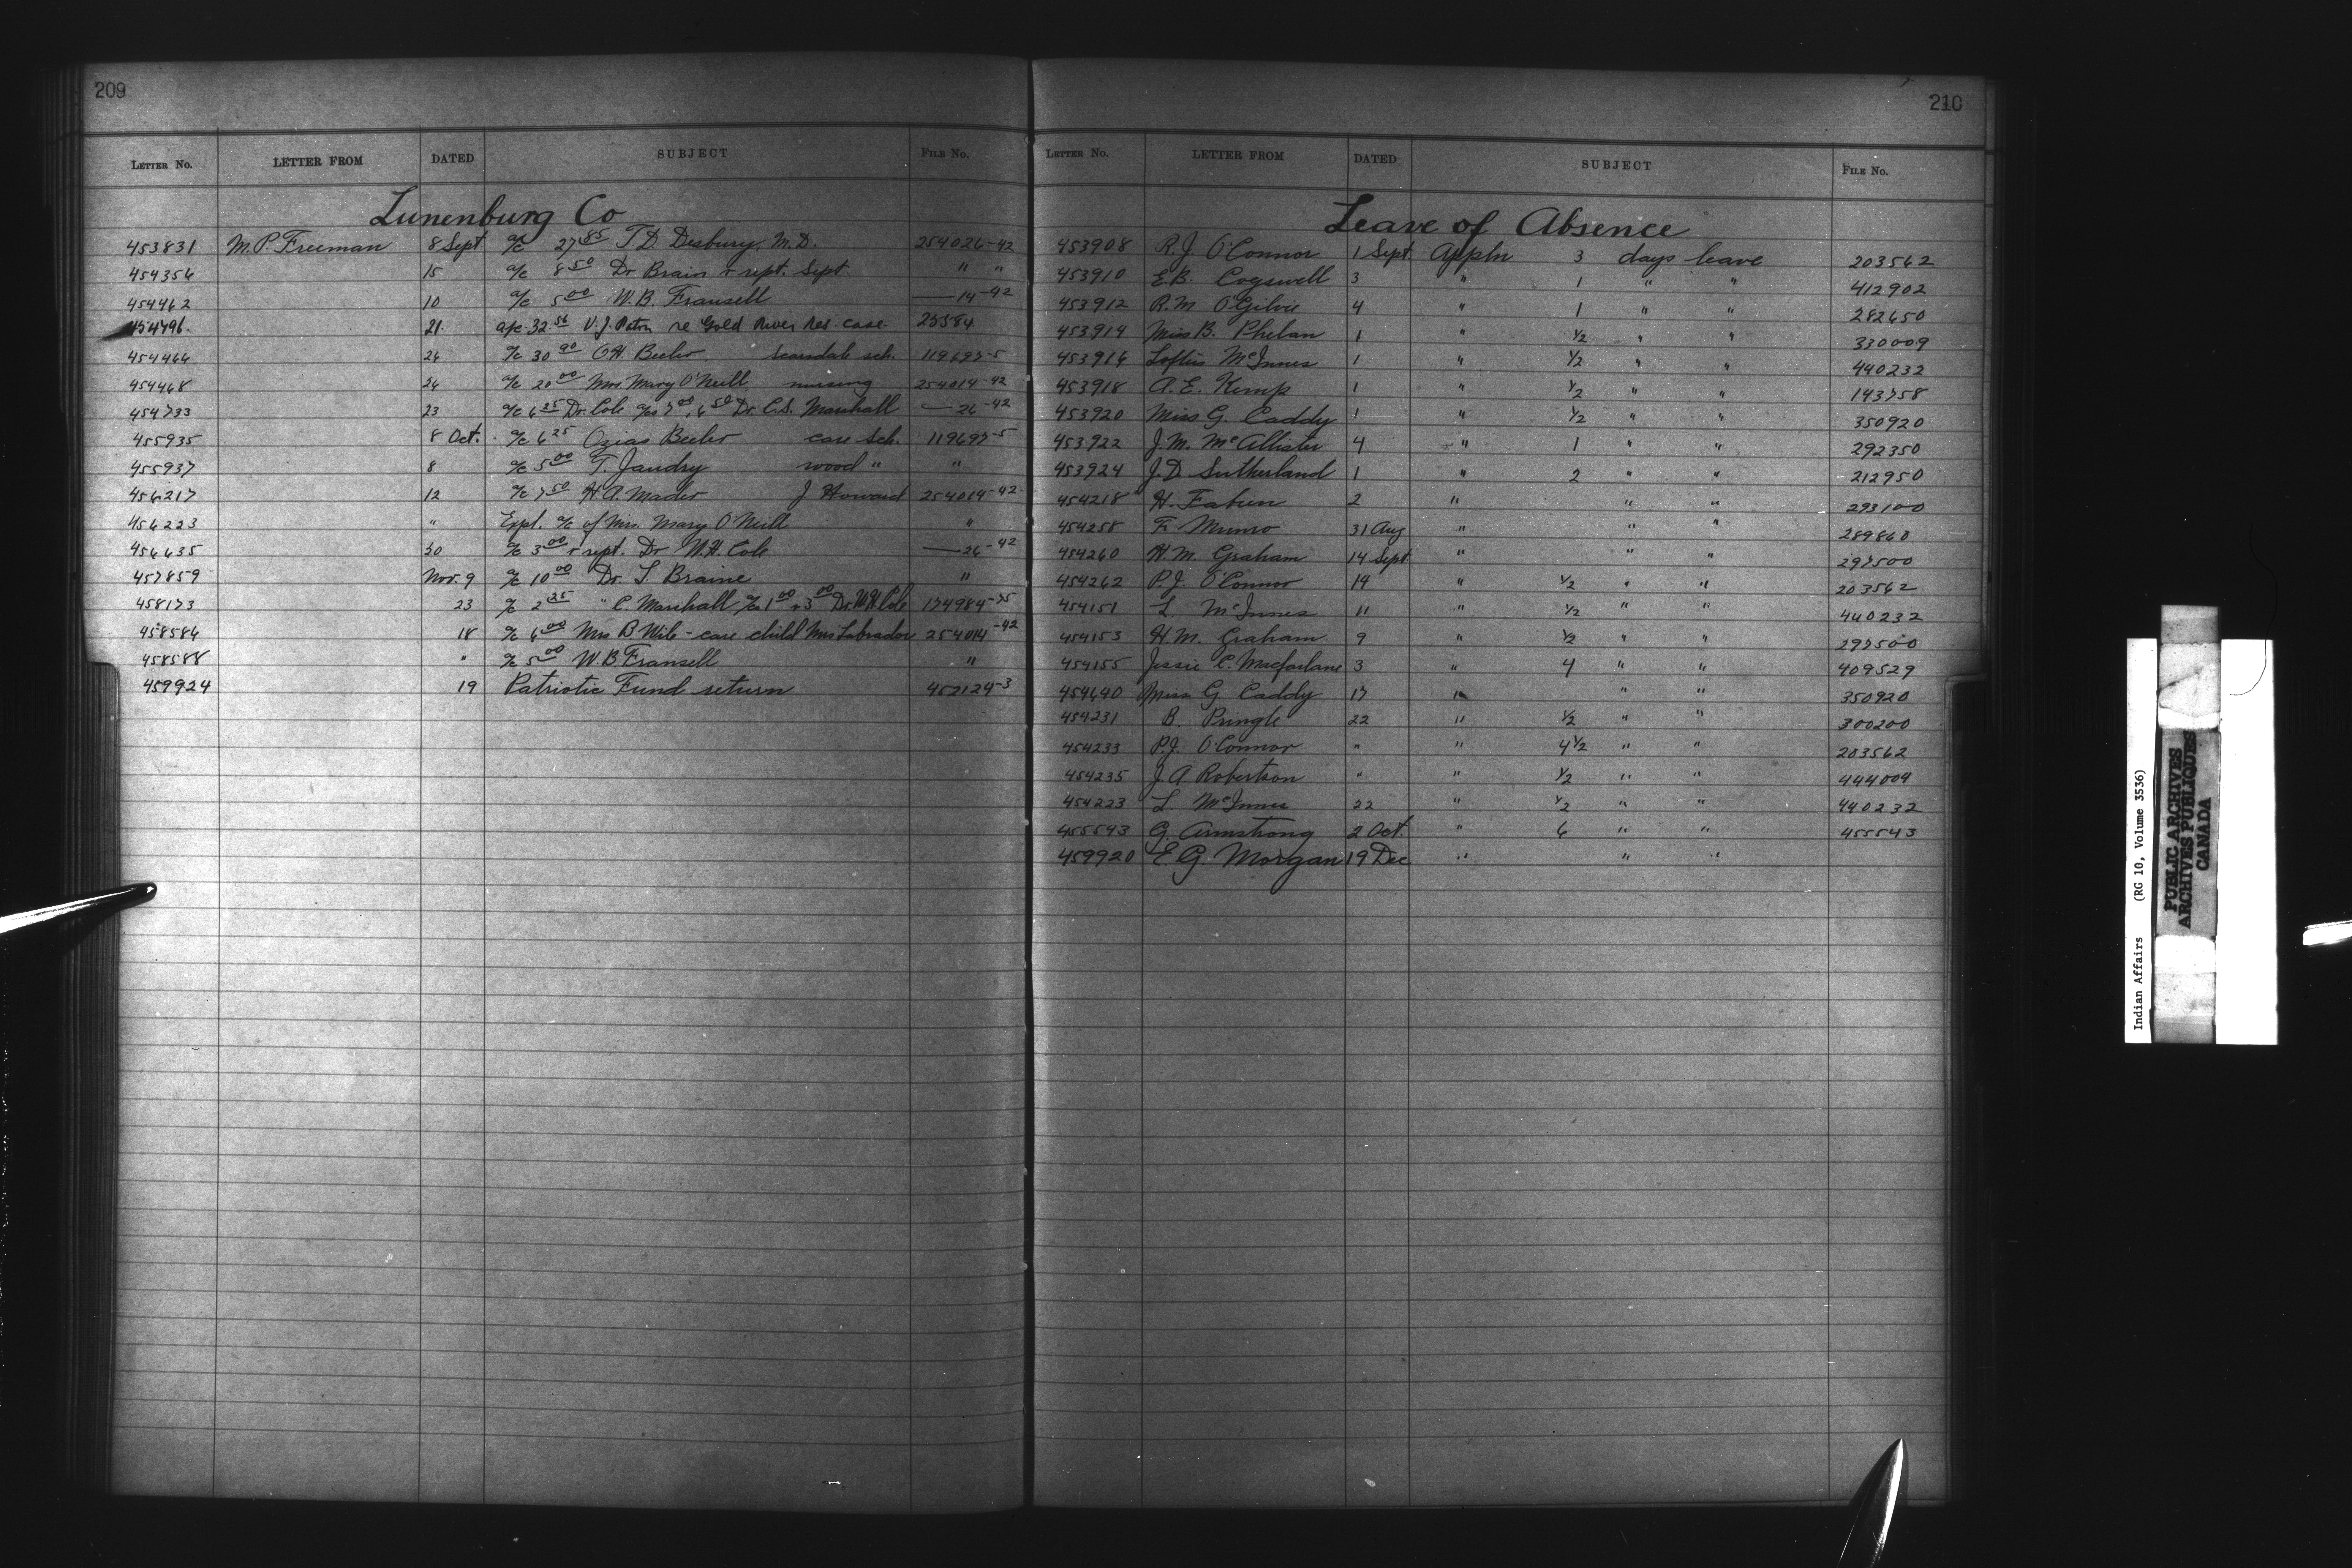 209
LETTER No. LETTER FROM DATED SUBJECT FILE No.
Lunenburg Co
453831 M.P. Freeman 8 Sept a/c 27 85 T.D. Desbury, M.D. 254026-42
454356 15 a/c 8 50 Dr Brain & rept. Sept. " "
454462 10 a/c 5 00 W.B. Fransell —14-42
454496. 21. a/c 32 56 V.J. Paton re Gold River Res. case. 25584
454466 26 a/c 30 90 O.H. Beeler sch. 119697-5
454468 26 a/c 20 00 Mrs. Mary O'Neill nursing 254014-42
454733 23 a/c 6 25 Dr. Cole a/cs 7 00, 6 50 Dr. C.S. Marshall —26-42
455935 8 Oct. a/c 6 25 Ozias Beeler care Sch. 119697-5
455937 8 a/c 5 00 T. Jaudry wood " "
456217 12 a/c 7 50 H.A. Mader J Howard 254014-42
456223 " Expl. a/c of Mrs. Mary O'Neill "
456635 20 a/c 3 00 & rept. Dr W.H. Cole —26-42
457859 Nov. 9 a/c 10 00 Dr. T. Braine "
458173 23 a/c 2 25 " C. Marshall a/cs 1 00 & 3 00 Dr. W.H. Cole 174984-75
458586 18 a/c 6 00 Mrs B Wile - care child Mrs Labrador 254014-42
458588 " a/c 5 00 W.B. Fransell "
459924 19 Patriotic Fund return 452124-3
210
LETTER No. LETTER FROM DATED SUBJECT FILE No.
Leave of Absence
453908 P.J. O'Connor 1 Sept. Appln 3 days leave 203562
453910 E.B. Cogswell 3 " 1 " " 412902
453912 R.M. O'Gilvie 4 " 1 " " 282650
453914 Miss B. Phelan 1 " 1/2 " " 330009
453916 Loftus McInnes 1 " 1/2 " " 440232
453918 A.E. Kemp 1 " 1/2 " " 143758
453920 Miss G. Caddy 1 " 1/2 " " 350920
453922 J.M. McAllister 4 " 1 " " 292350
453924 J.D. Sutherland 1 " 2 " " 212950
454218 H. Fabien 2 " " " 293100
454258 F. Munro 31 Aug " " " 289860
454260 H.M. Graham 14 Sept " " " 297500
454262 P.J. O'Connor 14 " 1/2 " " 203562
454151 L McInnes 11 " 1/2 " " 440232
454153 H.M. Graham 9 " 1/2 " " 297500
454155 Jessie C. Macfarlane 3 " 4 " " 409529
454640 Miss G Caddy 17 " " " 350920
454231 B. Pringle 22 " 1/2 " " 300200
454233 P.J. O'Connor " " 4 1/2 " " 203562
454235 J.A. Robertson " " 1/2 " " 444004
454223 L McInnes 22 " 1/2 " " 440232
455543 G. Armstrong 2 Oct. " 6 " " 455543
459920 E G. Morgan 19 Dec " " "
Indian Affairs (RG 10, Volume 3536)
PUBLIC ARCHIVES
ARCHIVES PUBLIQUES
CANADA